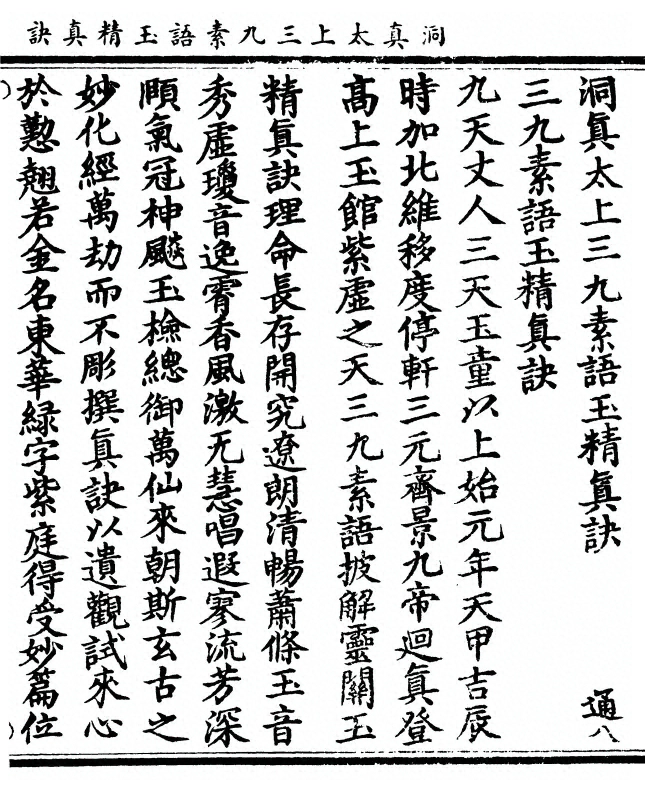 洞真太上三九素語玉精真訣
洞眞太上三九素語玉精眞訣　通八
三九素語玉精眞訣
九天丈人三天玉童以上始元年天甲吉辰
時加北維移度停軒三元齊景九帝迴眞登
髙上玉館紫虛之天三九素語披解靈關玉
精眞訣理命長存開究遼朗清暢蕭條玉音
秀虛瓊音逸霄香風激无慧唱遐寥流芳深
順氣冠神飈玉檢總御萬仙來朝斯玄古之
妙化經萬劫而不彫撰眞訣以遺觀試來心
於懃翹若金名東華緑字紫庭得受妙篇位